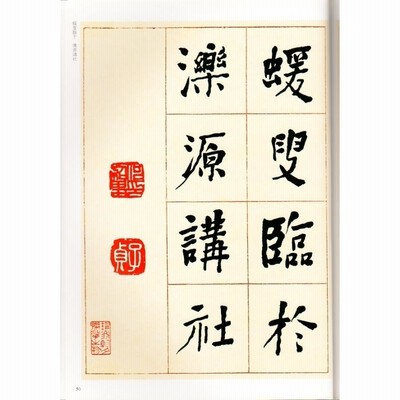 蝯叟臨於
濼源講社
子貞